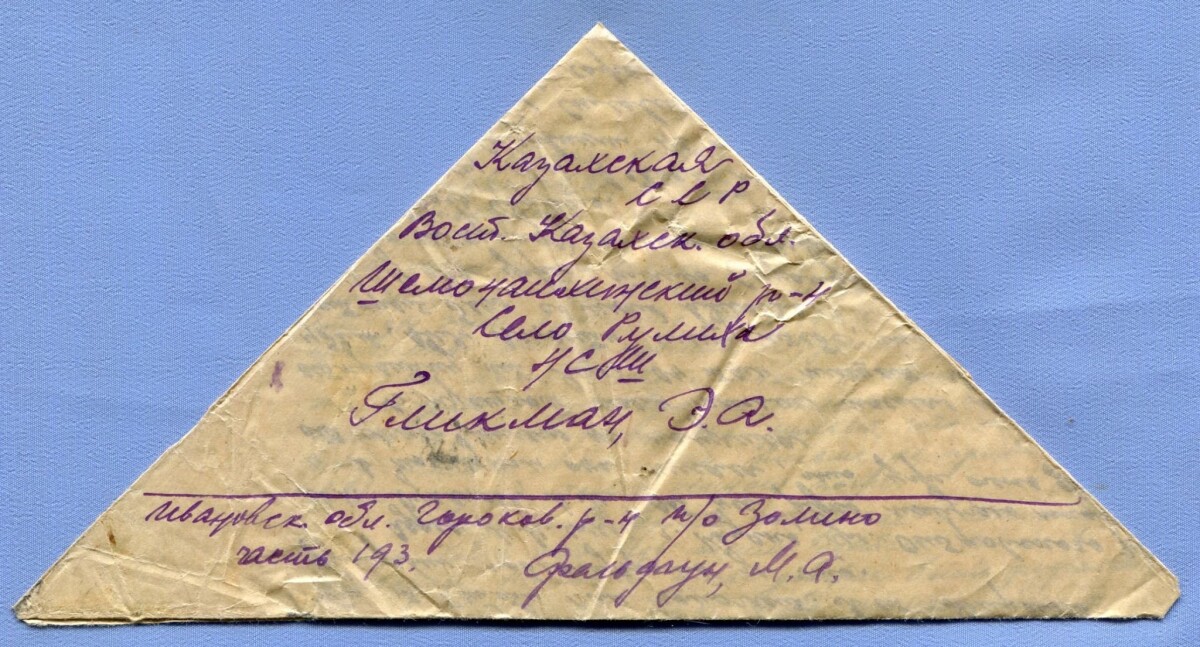 Казахская
ССР
Вост. Казахск. обл.
Шемонаихинский р-н
Село Румиха
НСШ
Гликман, Э.А.
Ивановск. обл. Горохов. р-н п/о Золино
часть 193.
М.А.